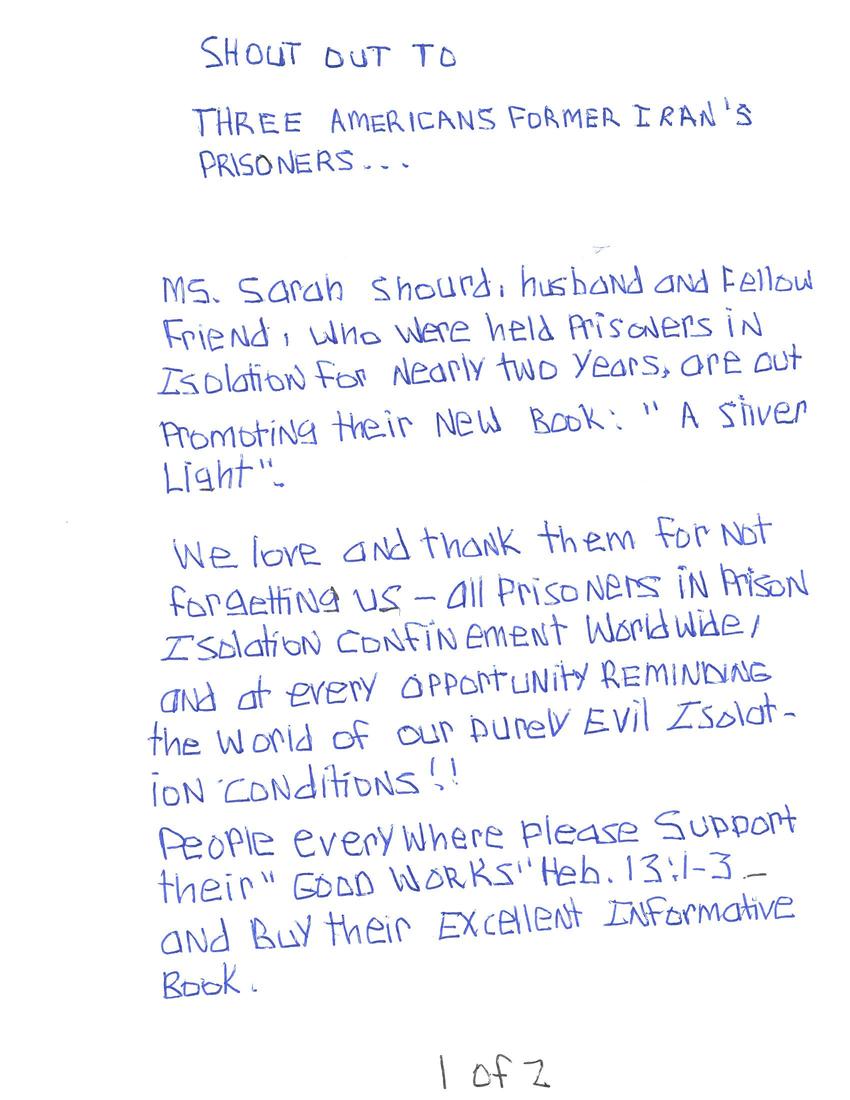 SHOUT OUT TO
THREE AMERICANS FORMER IRAN'S
PRISONERS...
MS. Sarah Shourd, husband and Fellow
Friend, who were held Prisoners in
Isolation for Nearly two years, are out
Promoting their New Book: " A Sliver
Light".
We love and thank them for Not
forgetting us - all Prisoners in Prison
Isolation Confinement Worldwide,
and at every opportunity REMINDING
the world of our purely Evil Isolat-
ion Conditions!!
People everywhere please Support
their "GOOD WORKS" Heb. 13:1-3 -
and Buy their Excellent Informative
Book.
1 of 2